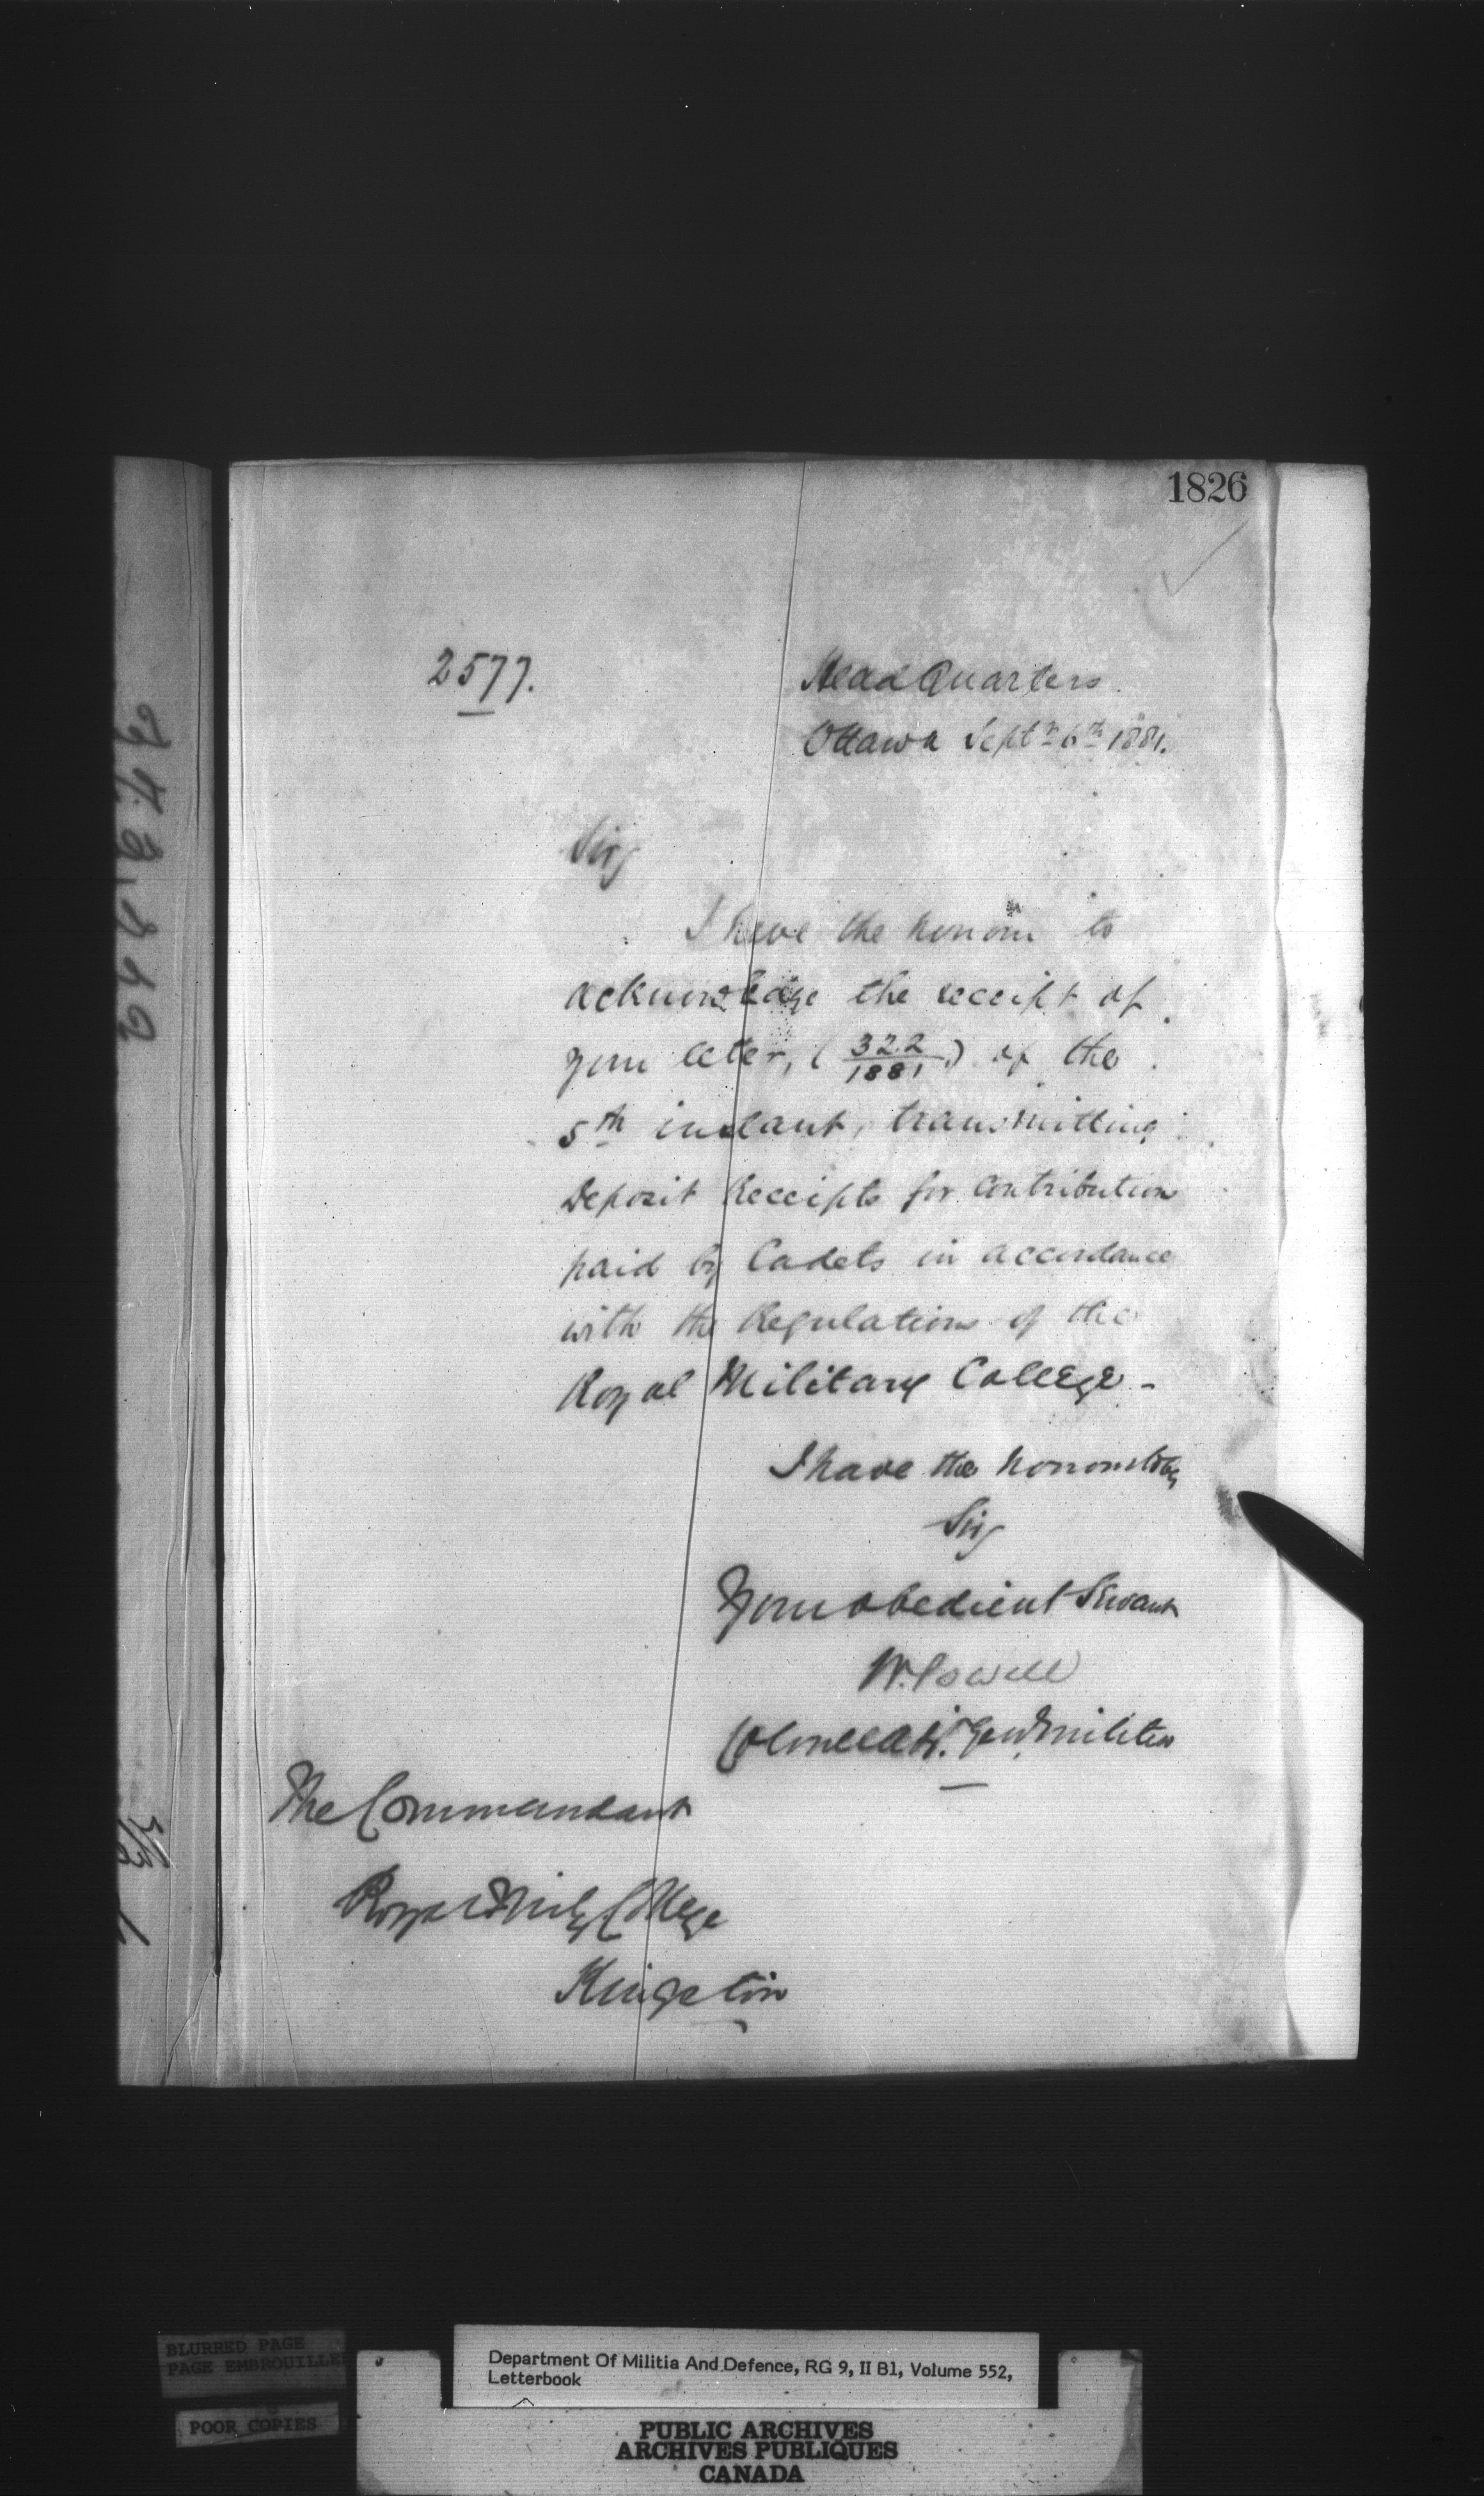 1826
2577.
Head Quarters.
Ottawa Septr 6th 1881.
Sir,
I have the honour to
acknowledge the receipt of
your letter, (322/1881) of the
5th instant, transmitting
Deposit Receipts for Contribution
paid by Cadets in accordance
with the Regulations of the
Royal Military College -
I have the honour to be,
Sir,
Your obedient Servant
W. Powell
Colonel Adj. Genl Militia
The Commandant
Royal Mily College
Kingston
BLURRED PAGE
PAGE EMBROUILLEE
POOR COPIES
Department Of Militia And Defence, RG 9, II B1, Volume 552,
Letterbook
PUBLIC ARCHIVES
ARCHIVES PUBLIQUES
CANADA